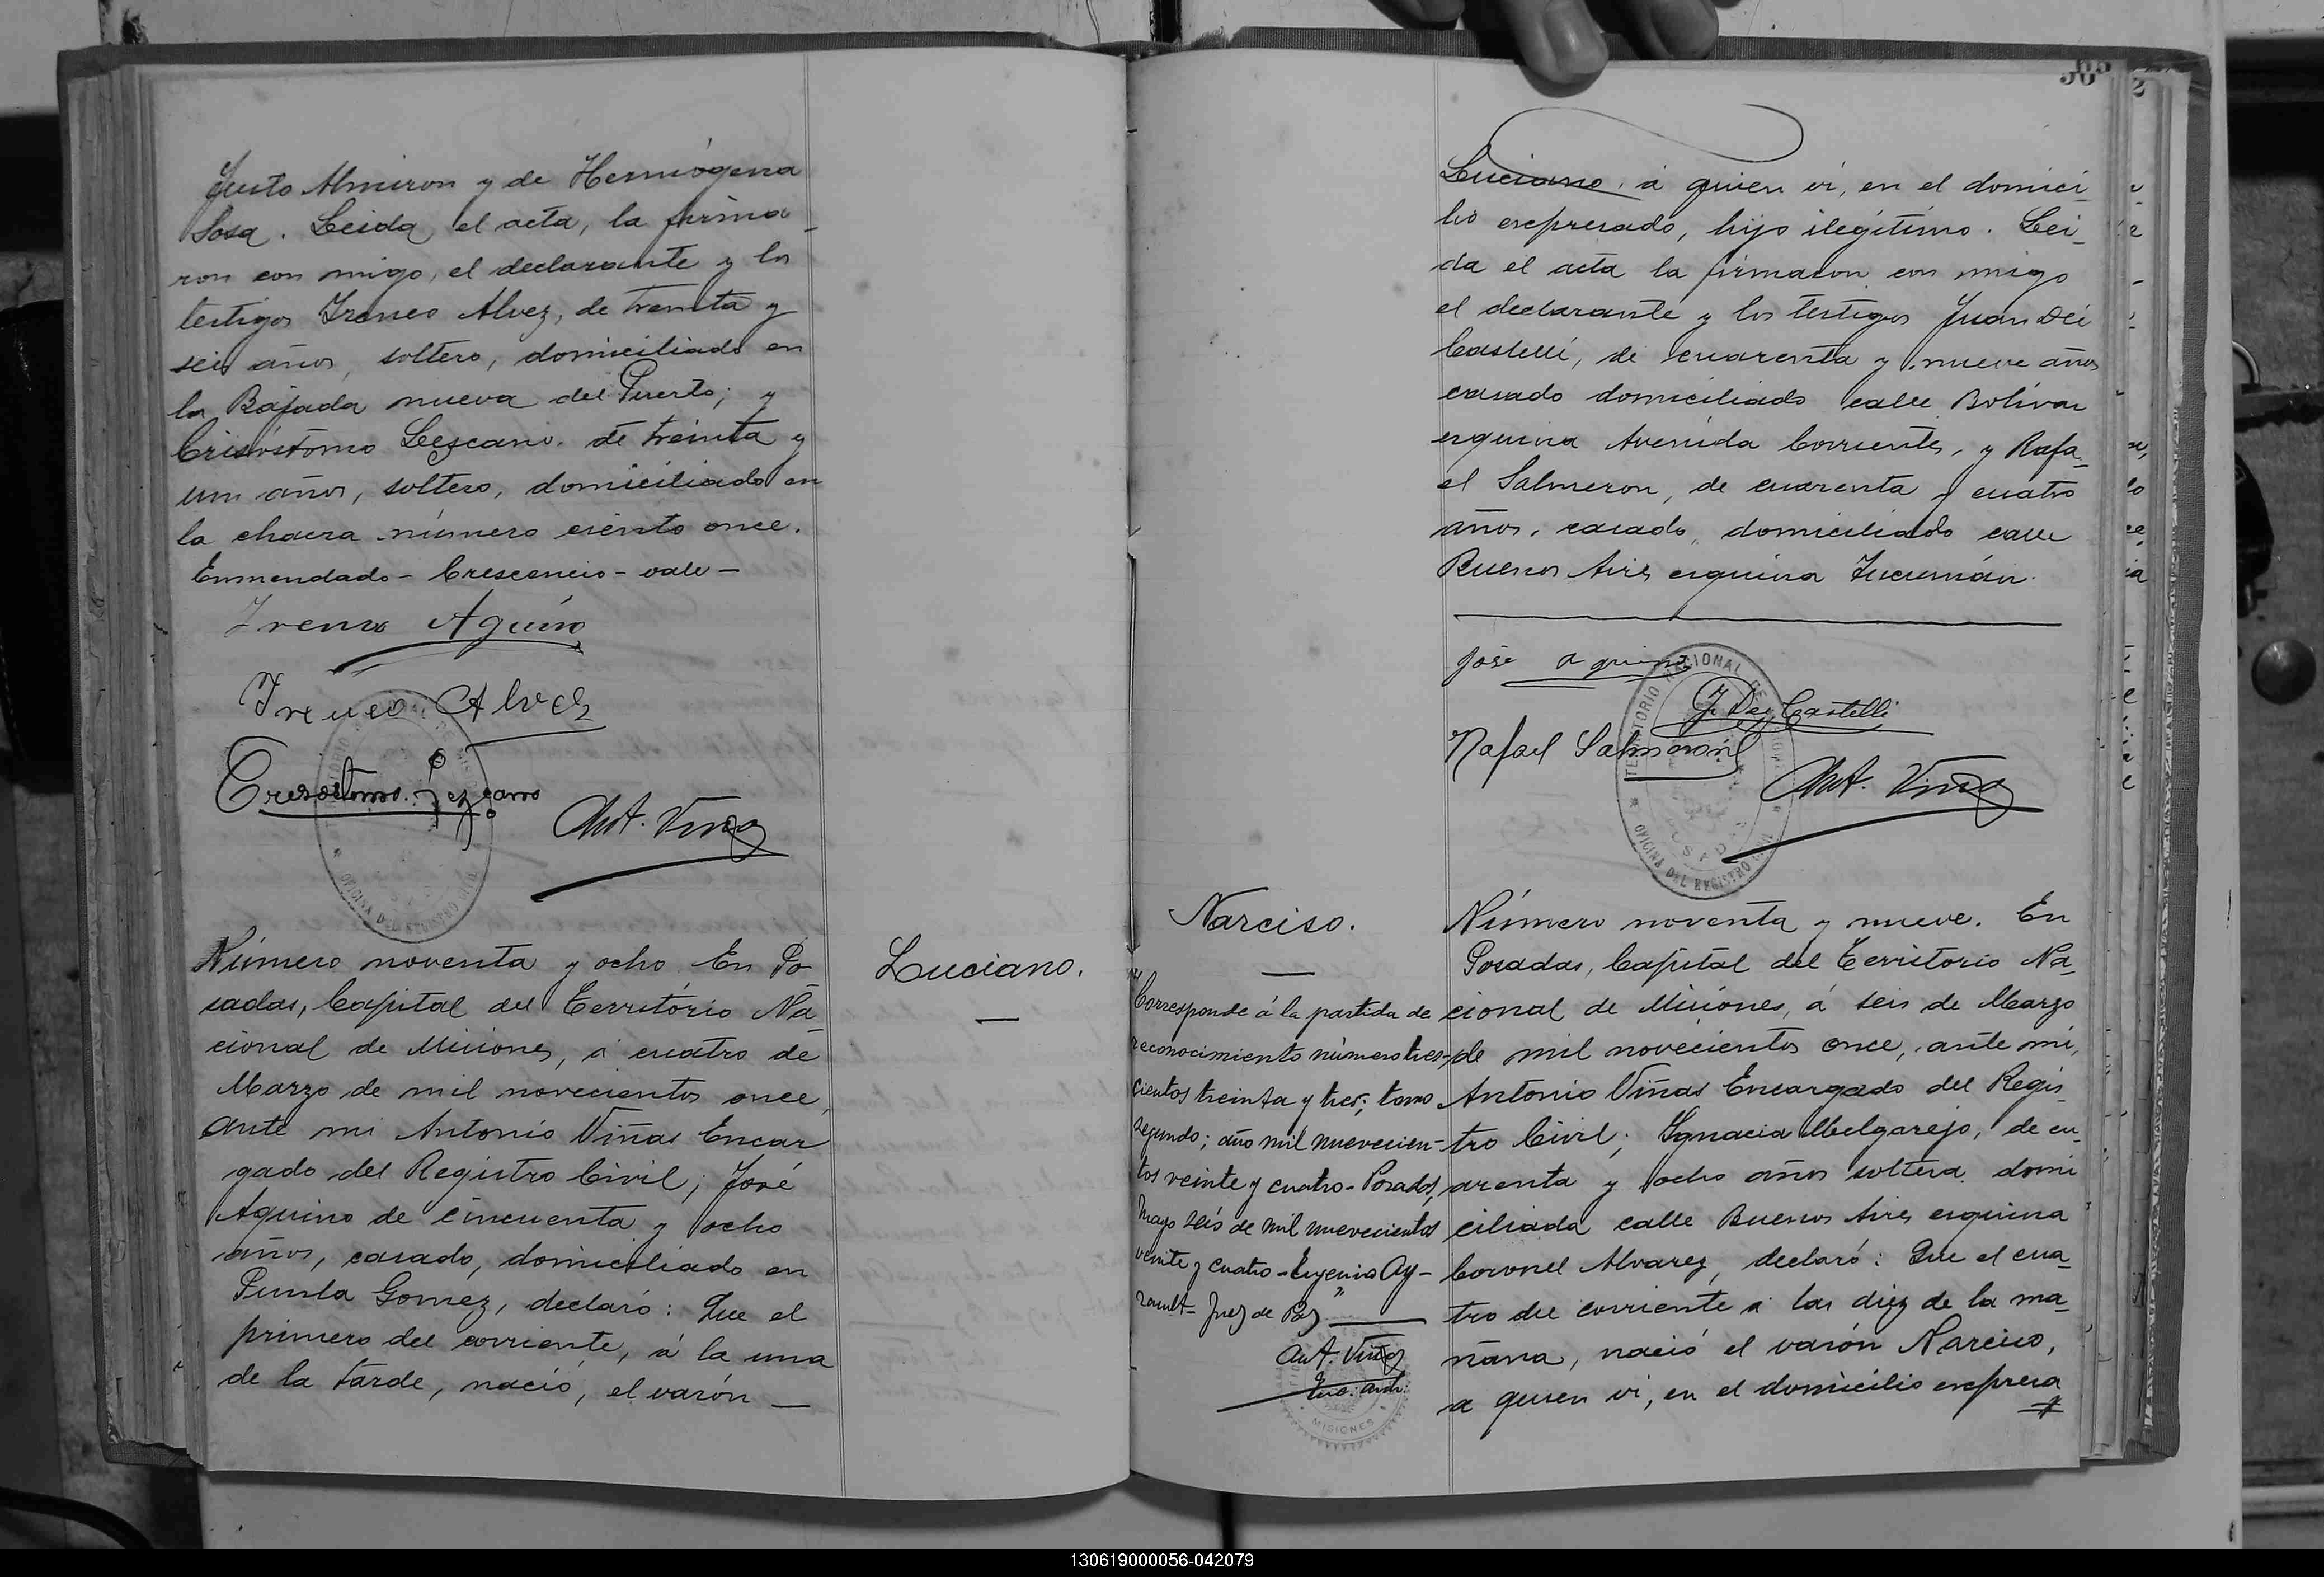 Justo Almiron y de Hermógena
Sosa. Leida el acta, la firma_
ron con migo, el declarante y los
testigos Ireneo Alvez, de treinta y
seis años, soltero, domiciliado en
la Bajada nueva del Puerto; y
Crisóstomo Lezcano, de treinta y
un años, soltero, domiciliado en
la chacra número ciento once.
Enmendado - Crescencio - vale -
Ireneo Aquino
Ireneo Alvez
Cresostomo Lezcano
Ant. Viñas
Número noventa y ocho. En Po_
sadas, Capital del Territorio Na_
cional de Misiones, á cuatro de
Marzo de mil novecientos once,
ante mi Antonio Viñas Encar
gado del Registro Civil; José
Aquino de cincuenta y ocho
años, casado, domiciliado en
Punta Gomez, declaró: Que el
primero del corriente, á la una
de la tarde, nació, el varón _
Luciano.
Luciano, á quien vi, en el domici_
lio expresado, hijo ilegítimo. Lei_
da el acta la firmaron con migo
el declarante y los testigos Juan Dei
Castelli, de cuarenta y nueve años
casado domiciliado calle Bolívar
esquina Avenida Corrientes, y Rafa_
el Salmeron, de cuarenta y cuatro
años, casado, domiciliado calle
Buenos Aires esquina Tucumán.
José aquino
J. Dei Castelli
Rafael Salmerón
Ant. Viñas
TERRITORIO NACIONAL DE MISIONES
OFICINA DEL REGISTRO CIVIL
POSADAS
Narciso.
Corresponde á la partida de
reconocimiento número tres-
cientos treinta y tres; tomo
segundo; año mil nuevecien-
tos veinte y cuatro - Posadas,
Mayo seis de mil nuevecientos
veinte y cuatro - Eugenio Ay-
rault - Juez de Paz
Ant. Viñas
Enc.
MISIONES
Número noventa y nueve. En
Posadas, Capital del Territorio Na_
cional de Misiones, á seis de Marzo
de mil novecientos once, ante mi,
Antonio Viñas Encargado del Regis_
tro Civil; Ignacia Melgarejo, de cu_
arenta y ocho años soltera, domi
ciliada calle Buenos Aires esquina
Coronel Alvarez, declaró: Que el cua_
tro del corriente á las diez de la ma_
ñana, nació el varón Narciso,
a quien vi, en el domicilio expresa
130619000056-042079